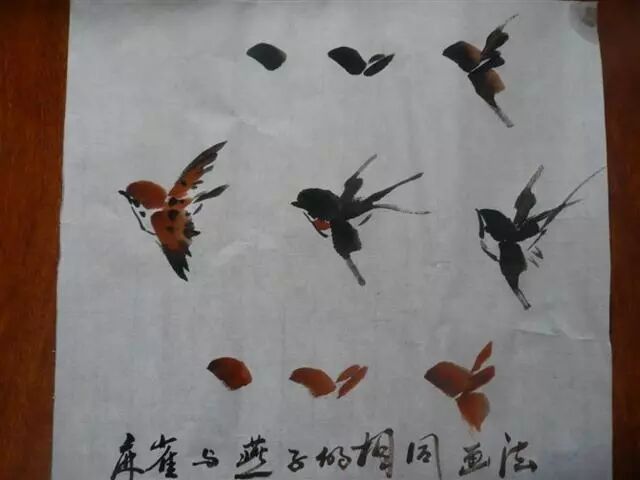 麻雀与燕子的相同画法